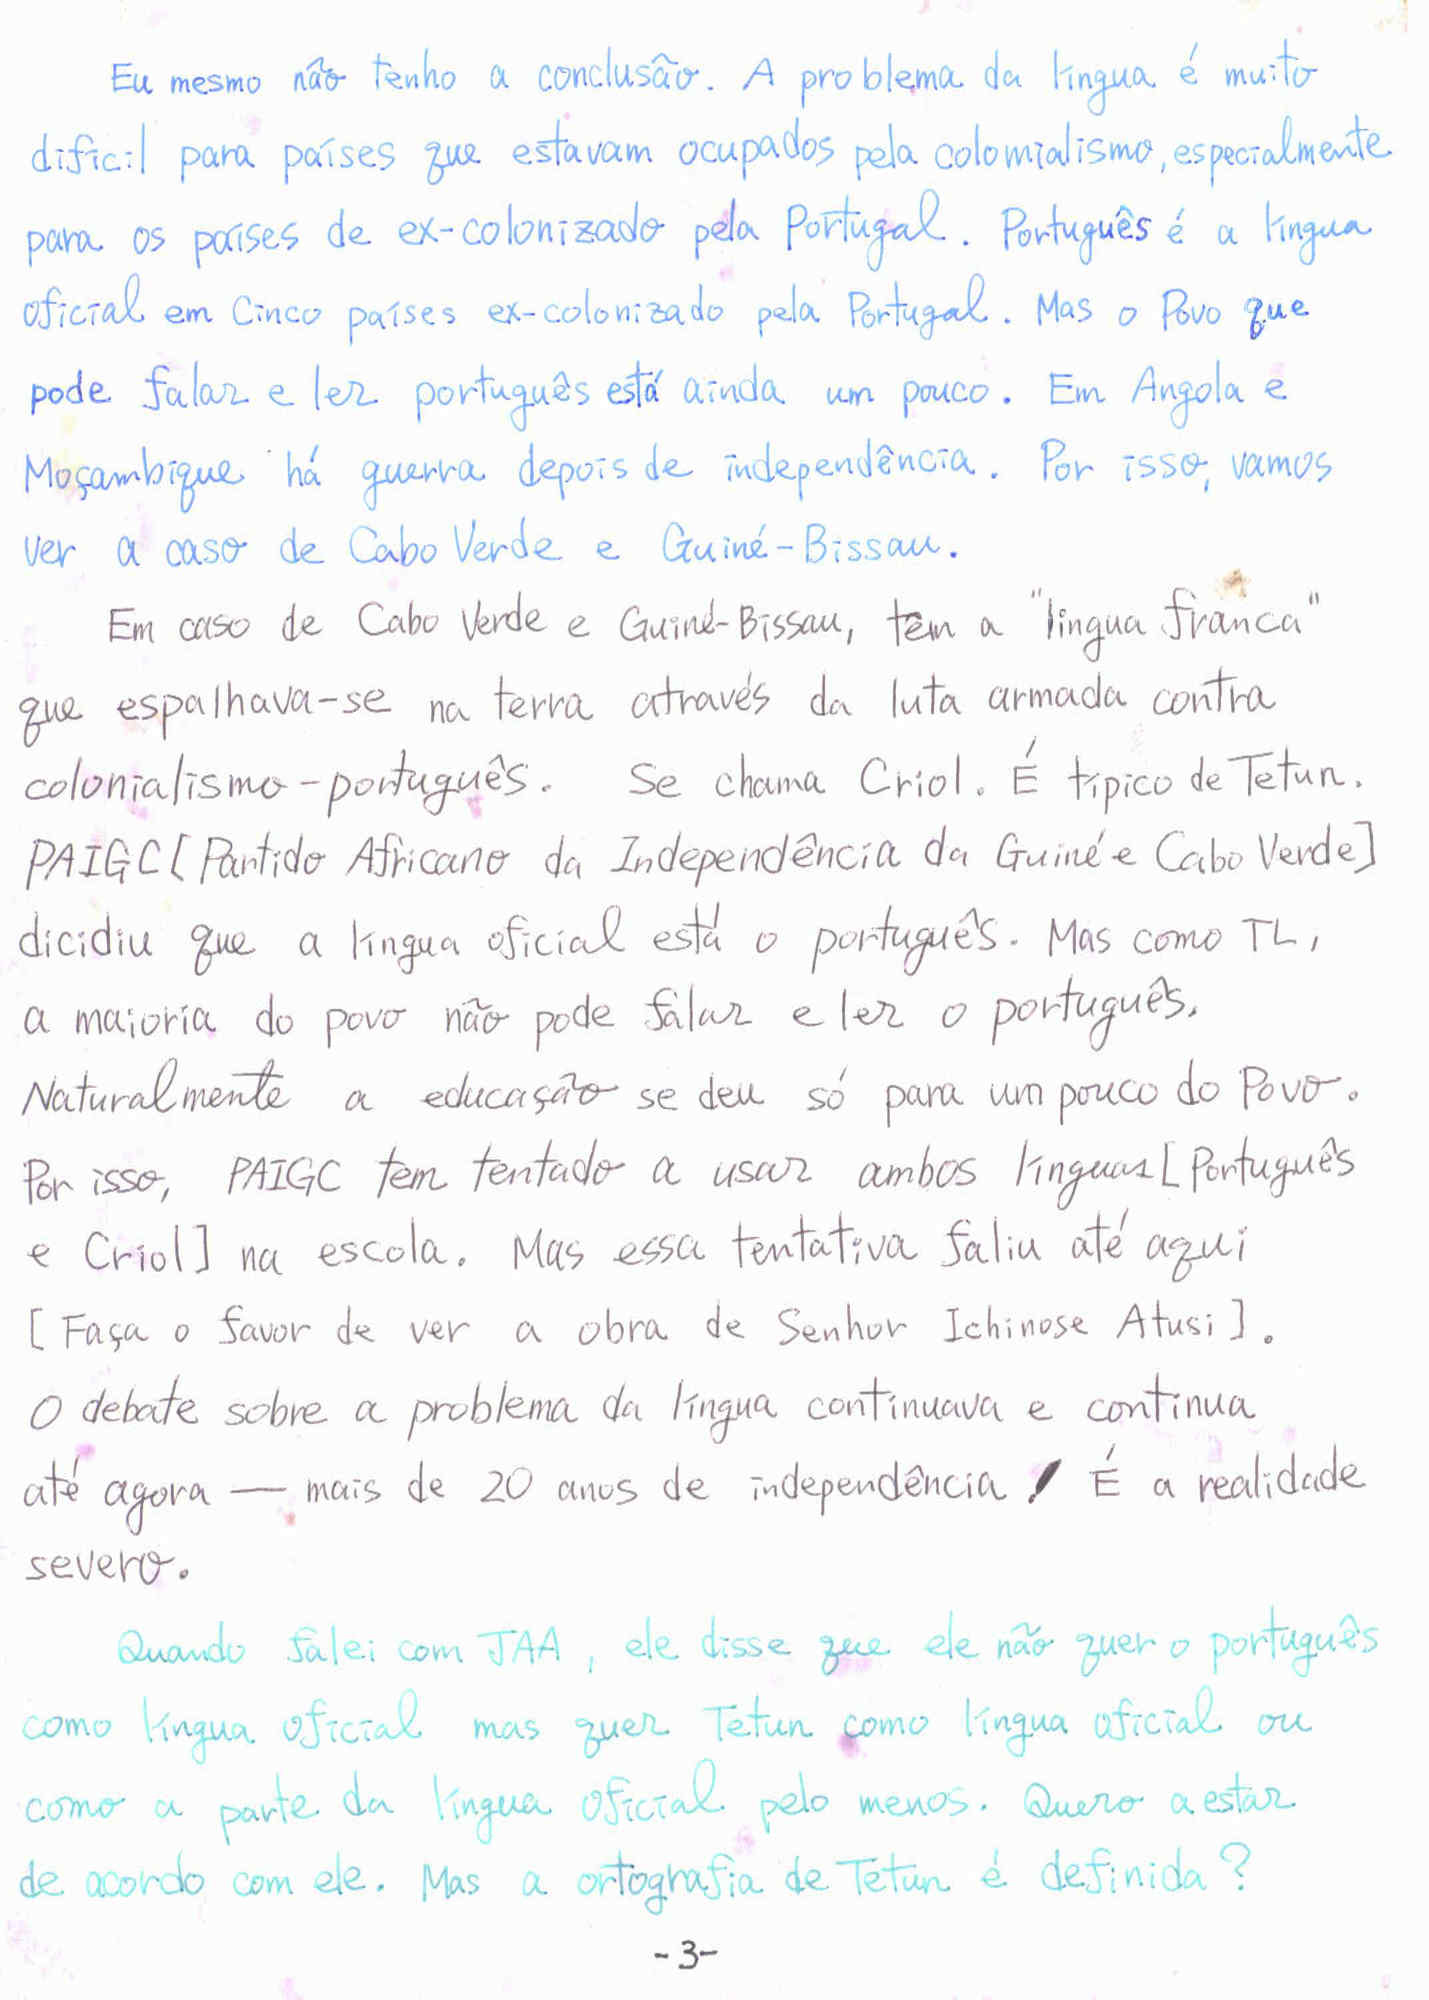 Eu mesmo não tenho a conclusão. A problema da língua é muito
dificil para países que estavam ocupados pela colomialismo, especialmente
para os países de ex-colonizado pela Portugal. Português é a língua
oficial em Cinco países ex-colonizado pela Portugal. Mas o Povo que
pode falar e ler português está ainda um pouco. Em Angola e
Moçambique há guerra depois de independência. Por isso, vamos
ver a caso de Cabo Verde e Guiné-Bissau.
Em caso de Cabo Verde e Guiné-Bissau, têm a "lingua franca"
que espalhava-se na terra através da luta armada contra
colonialismo-português. Se chama Criol. É típico de Tetun.
PAIGC [Partido Africano da Independência da Guiné e Cabo Verde]
dicidiu que a língua oficial está o português. Mas como TL,
a maioria do povo não pode falar e ler o português.
Naturalmente a educação se deu só para um pouco do Povo.
Por isso, PAIGC tem tentado a usar ambos línguas [Português
e Criol] na escola. Mas essa tentativa faliu até aqui
[Faça o favor de ver a obra de Senhor Ichinose Atusi].
O debate sobre a problema da língua continuava e continua
até agora — mais de 20 anos de independência! É a realidade
severo.
Quando falei com JAA, ele disse que ele não quer o português
como língua oficial mas quer Tetun como língua oficial ou
como a parte da língua oficial pelo menos. Quero a estar
de acordo com ele. Mas a ortografia de Tetun é definida?
-3-